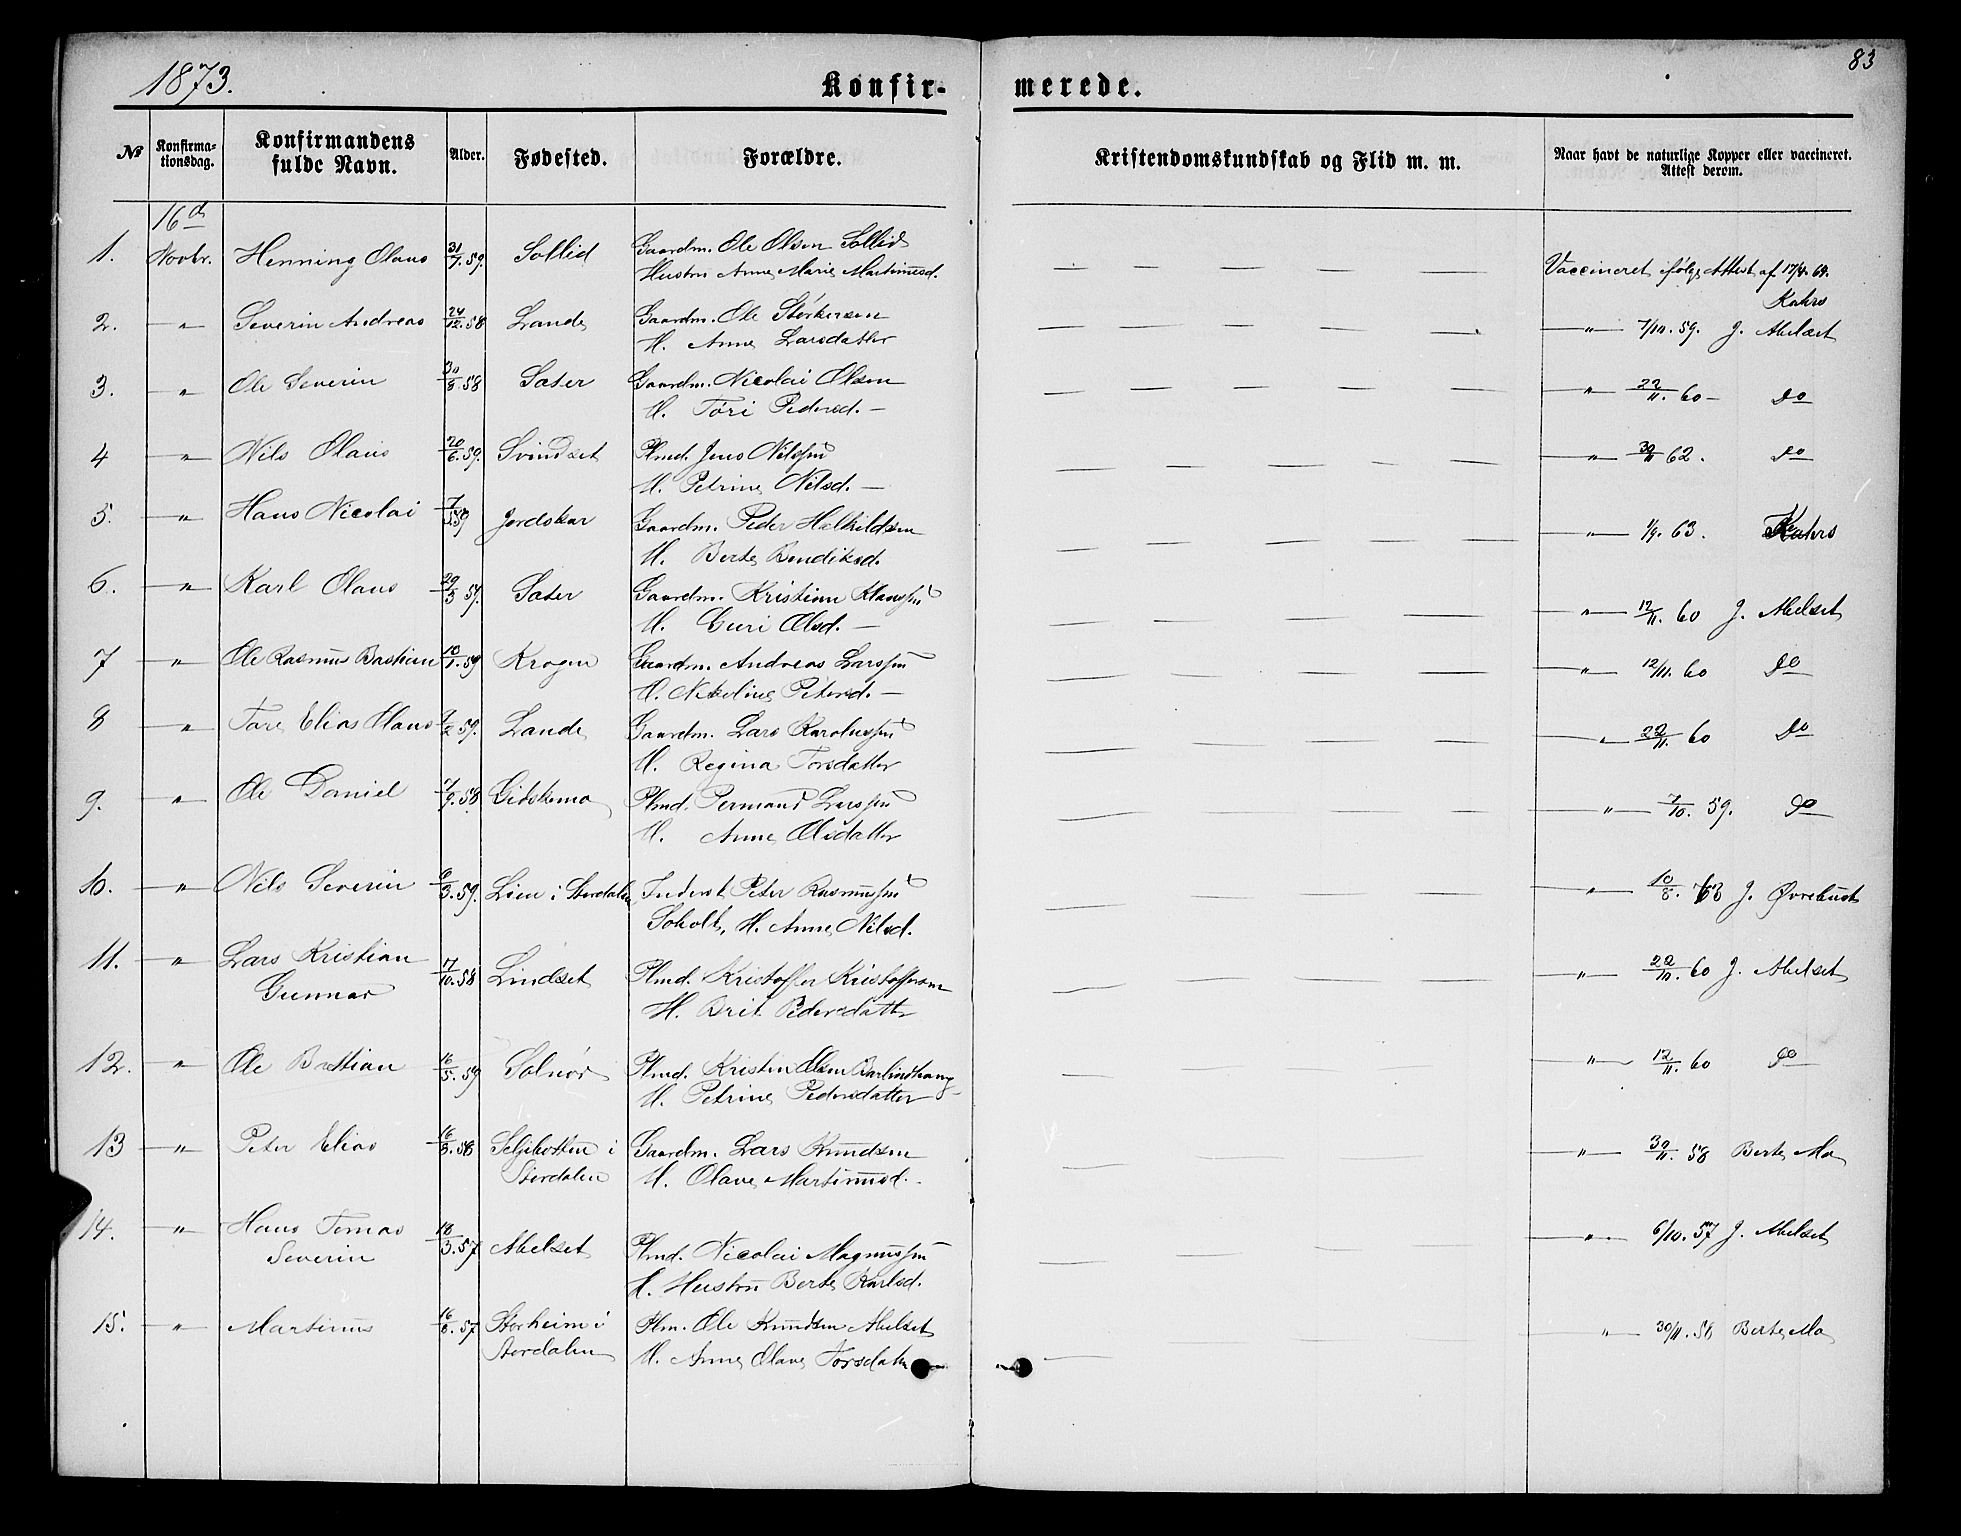 1873.
Konfir-
merede.
83
№
Konfirma-
tionsdag.
Konfirmandens
fulde Navn.
Alder.
Fødested.
Forældre.
Kristendomskundskab og Flid m. m.
Naar havt de naturlige Kopper eller vaccineret.
Attest derom.
16d
1. Novbr. Henning Olaus 31/7.59. Sollid Gaardm. Ole Olsen Sollid
Hustru Anne Marie Martinusd.
— — — — — — Vaccineret ifølge Attest af 17/4.69.
Kahrs
2. — " — Severin Andreas 24/12.58 Lande Gaardm. Ole Størkersen
H. Anne Larsdatter
— — — — — — — " — 7/10.59. J. Abelset
3. — " — Ole Severin 30/8.58 Sæter Gaardm. Nicolai Olsen
H. Töri Pedersd. —
— — — — — — — " — 22/11.60 — Do
4 — " — Nils Olaus 20/6.59. Svindset Plmd. Jens Nilssen
H. Petrine Nilsd. —
— — — — — — — " — 30/11 62. Do
5. — " — Hans Nicolai 7/5.59 Jordskar Gaardm. Peder Helkildsen
H. Berte Bendiksd.
— — — — — — — " — 1/9.63. Kahrs
6. — " — Karl Olaus 29/3.59. Sæter Gaardm. Kristian Klaussen
H. Guri Olsd. —
— — — — — — — " — 12/11.60 J. Abelset
7 — " — Ole Rasmus Bastian 10/1.59 Krogen Gaardm. Andreas Larssen
H. Nikoline Petersd. —
— — — — — — — " — 12/11.60 Do
8 — " — Tore Elias Olaus 7/2.59. Lande Gaardm. Lars Karolussen
H. Regina Torsdatter
— — — — — — — " — 22/11.60 Do
9. — " — Ole Daniel 7/9.58 Gidskemo Plmd. Permand Larssen
H. Anne Olsdatter
— — — — — — — " — 7/10.59. Do
10. — " — Nils Severin 6/3.59. Lien i Stordalen Inderst Peter Rasmussen
Soholt, H. Anne Nilsd.
— — — — — — — " — 10/8.63 J. Øvrebust
11. — " — Lars Kristian
Gunnar 7/10.58 Lindset Plmd. Kristoffer Kristoffersen
H. Brit Pedersdatter
— — — — — — — " — 22/11.60 J. Abelset
12. — " — Ole Bastian 16/5.59 Solnør Plmd. Kristen Olsen Barlindhaug
H. Petrine Pedersdatter —
— — — — — — — " — 12/11.60 Do
13 — " — Peter Elias 16/3.58 Seljebotten i
Stordalen Gaardm. Lars Knudsen
H. Olave Martinusd.
— — — — — — — " — 30/11.58 Berte Mo
14. — " — Hans Tomas
Severin 18/3.57 Abelset Plmd. Nicolai Magnussen
H. Hustru Berte Karlsd.
— — — — — — — " — 6/10.57 J. Abelset
15. — " — Martinus 16/8.57 Storheim i
Stordalen Plm. Ole Knudsen Abelset
H. Anne Olave Torsdatter
— — — — — — — " — 30/11.58 Berte Mo